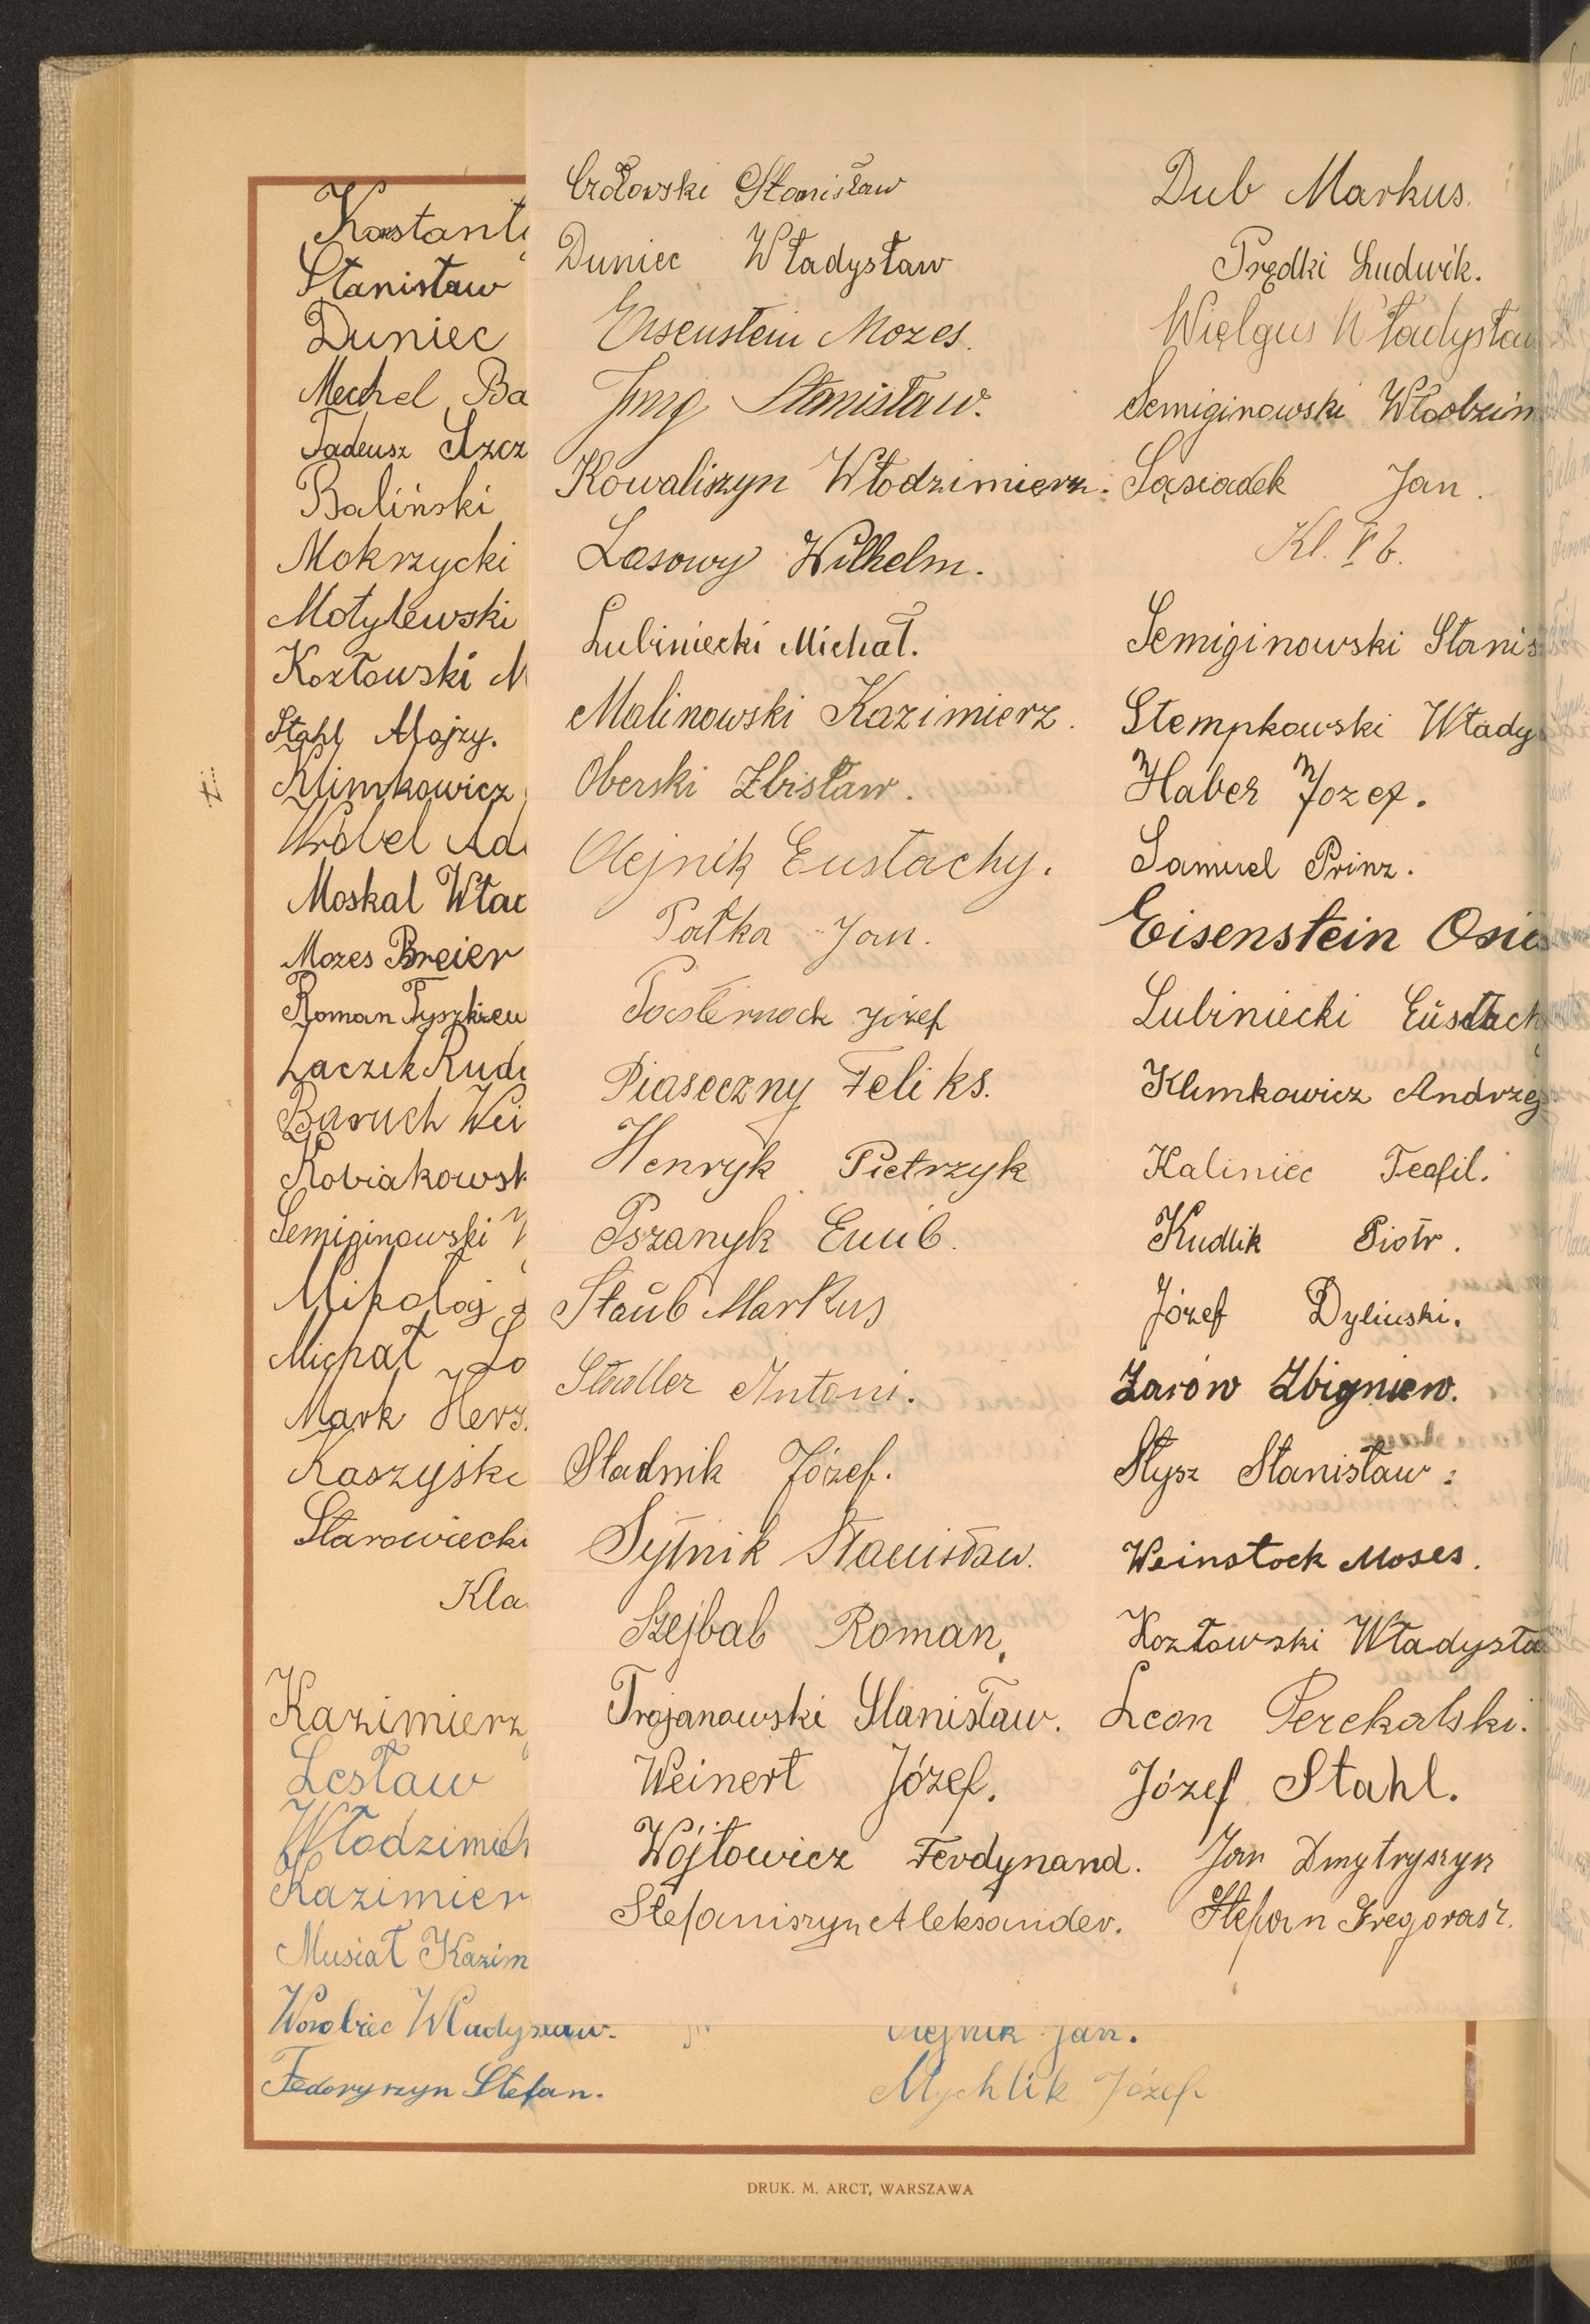 Konstant
Stanisław
Duniec
Mechel Ba
Tadeusz Szcz
Baliński
Mokrzycki
Motylewski
Kozłowski M
Stahl Mojzy.
Klimkowicz
Wróbel Ad
Moskal Wła
Mozes Breier
Roman Tyszkiew
Łaczek Rud
Baruch Wei
Kobiakowsk
Semiginowski W
Mikołaj
Michał So
Mark Hers
Kaszyski
Starowiecki
Kla
Kazimierz
Lesław
Włodzimie
Kazimier
Musiał Kazim
Worobiec Władysław.
Fedoryszyn Stefan.
Czołowski Stanisław
Duniec Władysław
Eisenstein Mozes.
Jmg Stanisław.
Kowaliszyn Włodzimierz.
Lasowy Wilhelm.
Lubiniecki Michał.
Malinowski Kazimierz.
Oberski Zbisław.
Olejnik Eustachy.
Pałka Jan.
Pasternack Józef
Piaseczny Feliks.
Henryk Pietrzyk
Pszanyk Emil.
Staub Markus
Stadler Antoni.
Stadnik Józef.
Sytnik Stanisław.
Szejbal Roman,
Trojanowski Stanisław.
Weinert Józef.
Wójtowicz Ferdynand.
Stefaniszyn Aleksander.
Dub Markus.
Prędki Ludwik.
Wielgus Władysław
Semiginowski Włodzim
Sąsiadek Jan.
Kl. V b.
Semiginowski Stanis
Stempkowski Włady
Haber Jozef.
Samuel Prinz.
Eisenstein Osia
Lubiniecki Eustach
Klimkowicz Andrzej
Kaliniec Teofil.
Kudlik Piotr.
Józef Dyliński.
Żarów Zbigniew.
Stysz Stanisław.
Weinstock Moses.
Kozłowski Władysła
Leon Perekalski.
Józef Stahl.
Jan Dmytryszyn
Stefan Gregorasz.
Olejnik Jan.
Mychlik Józef
DRUK. M. ARCT, WARSZAWA